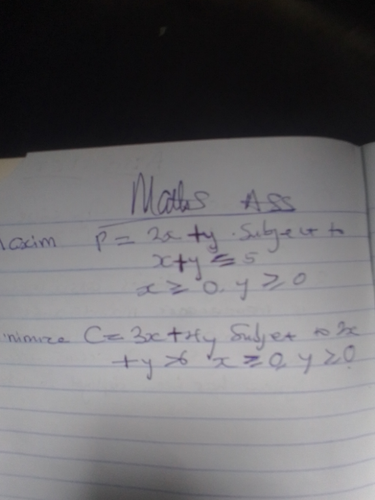 Maths Ass
axim P = 2x + y. Subject to
x + y ≤ 5
x ≥ 0, y ≥ 0
nimize C = 3x + 4y Subject to 2x
+ y ≥ 6 x ≥ 0, y ≥ 0